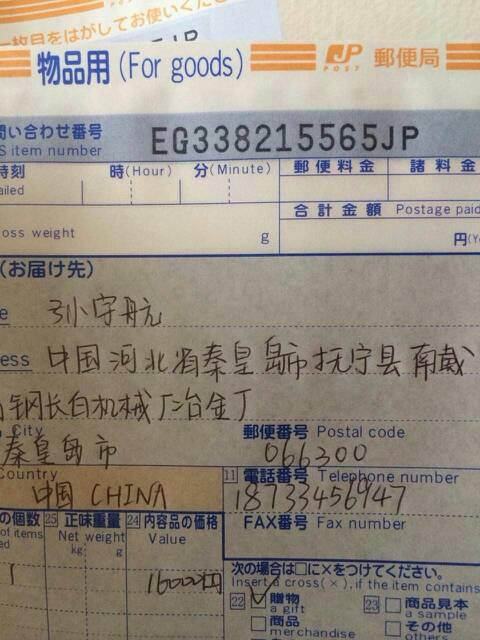 枚目をはがしてお使いくださ
物品用 (For goods) JP POST 郵便局
問い合わせ番号
S item number EG338215565JP
時刻 時(Hour) 分(Minute) 郵便料金 諸料金
ailed
合計金額 Postage paid
oss weight g 円(Y
(お届け先)
e 孙宇航
ess 中国河北省秦皇岛市抚宁县南戴
钢长白机械厂冶金丁
City 郵便番号 Postal code
秦皇岛市 066300
Country 11 電話番号 Telephone number
中国 CHINA 18733456947
FAX番号 Fax number
の個数 25 正味重量 24 内容品の価格
of items Net weight Value
ed kg g
次の場合は□に×をつけてください。
Insert a cross(×), if the item contains
1 16000円
22 贈物 23 商品見本
a gift a sample
商品 その他
merchandise others